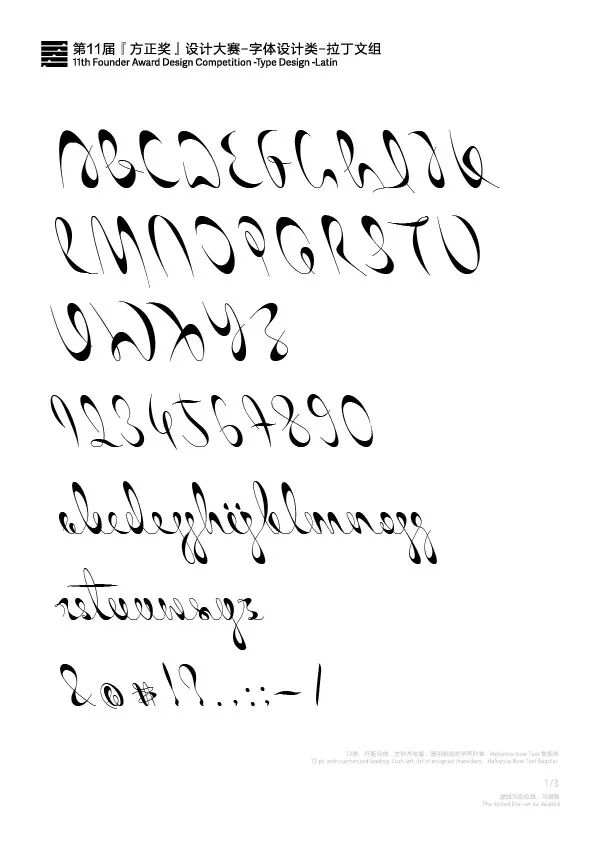 第11届『方正奖』设计大赛-字体设计类-拉丁文组
11th Founder Award Design Competition -Type Design -Latin
ABCDEFGHIJK
LMNOPQRSTU
VWXYZ
1234567890
abcdefghijklmnopq
rstuvwxyz
&@#!?.,:;-|
12 pt, with customized leading, flush left, list of assigned characters, Helvetica Now Text Regular.
1/3
虚线为定位线,可删除
The dotted line can be deleted